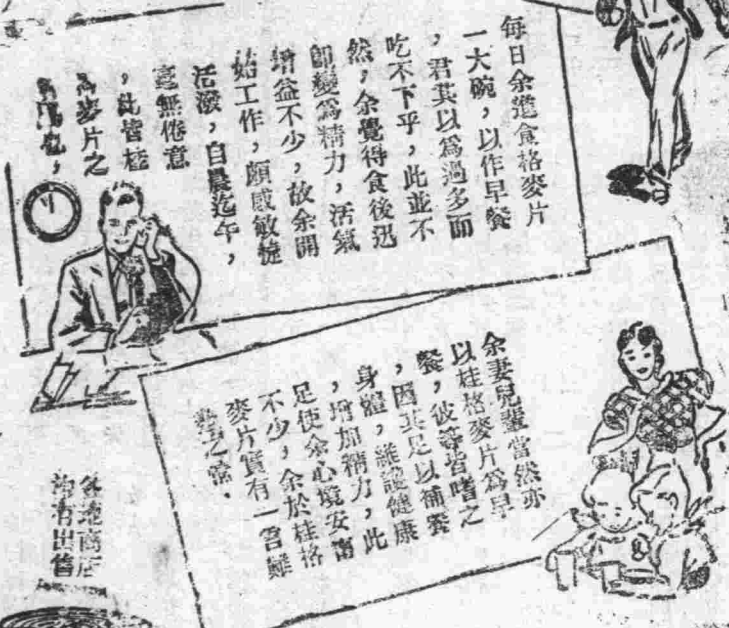 每日余進食格麥片
一大碗，以作早餐
，君其以爲過多而
吃不下乎，此並不
然，余覺得食後迅
卽變爲精力，活氣
增益不少，故余開
始工作，頗感敏捷
活潑，自晨迄午，
毫無倦意
，此皆桂
麥片之
余妻兒輩當然亦
以桂格麥片爲早
餐，彼等皆嗜之
，因其足以補養
身體，維護健康
，增加精力，此
足使余心境安甯
不少，余於桂格
麥片實有一言難
盡之慨．
各地商店
均有出售